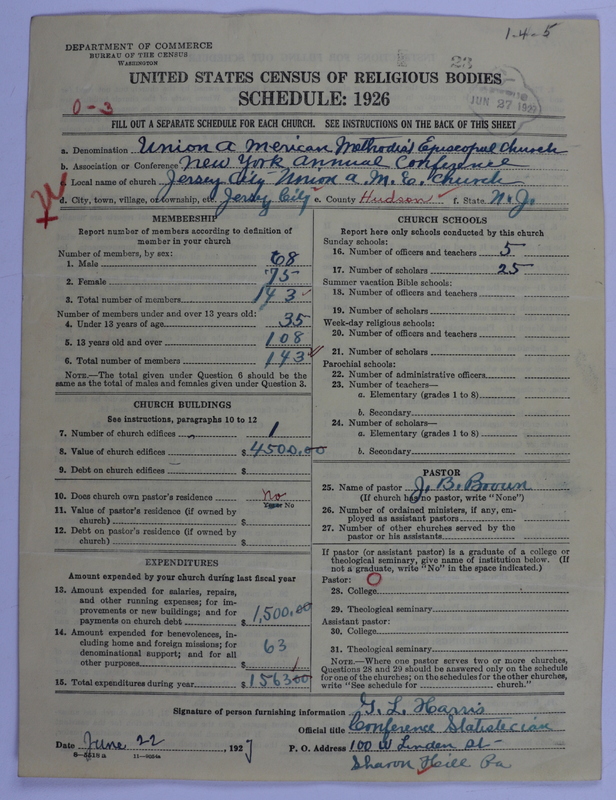 1-4-5
DEPARTMENT OF COMMERCE
BUREAU OF THE CENSUS
WASHINGTON
23
JUN 27 1927
UNITED STATES CENSUS OF RELIGIOUS BODIES
SCHEDULE: 1926
0-3
FILL OUT A SEPARATE SCHEDULE FOR EACH CHURCH. SEE INSTRUCTIONS ON THE BACK OF THIS SHEET
a. Denomination Union American Methodist Episcopal Church
b. Association or Conference New York Annual Conference
c. Local name of church Jersey City Union A. M. E. Church
d. City, town, village, or township, etc. Jersey City e. County Hudson f. State N.J.
MEMBERSHIP
Report number of members according to definition of
member in your church
Number of members, by sex:
1. Male 68
2. Female 75
3. Total number of members 143
Number of members under and over 13 years old:
4. Under 13 years of age 35
5. 13 years old and over 108
6. Total number of members 143
NOTE.—The total given under Question 6 should be the
same as the total of males and females given under Question 3.
CHURCH BUILDINGS
See instructions, paragraphs 10 to 12
7. Number of church edifices 1
8. Value of church edifices $ 4500.00
9. Debt on church edifices $
10. Does church own pastor's residence No
Yes or No
11. Value of pastor's residence (if owned by
church) $
12. Debt on pastor's residence (if owned by
church) $
EXPENDITURES
Amount expended by your church during last fiscal year
13. Amount expended for salaries, repairs,
and other running expenses; for im-
provements or new buildings; and for
payments on church debt $ 1,500.00
14. Amount expended for benevolences, in-
cluding home and foreign missions; for
denominational support; and for all
other purposes $ 63
15. Total expenditures during year $ 1563.00
CHURCH SCHOOLS
Report here only schools conducted by this church
Sunday schools:
16. Number of officers and teachers 5
17. Number of scholars 25
Summer vacation Bible schools:
18. Number of officers and teachers
19. Number of scholars
Week-day religious schools:
20. Number of officers and teachers
21. Number of scholars
Parochial schools:
22. Number of administrative officers
23. Number of teachers—
a. Elementary (grades 1 to 8)
b. Secondary
24. Number of scholars—
a. Elementary (grades 1 to 8)
b. Secondary
PASTOR
25. Name of pastor J. B. Brown
(If church has no pastor, write "None")
26. Number of ordained ministers, if any, em-
ployed as assistant pastors
27. Number of other churches served by the
pastor or his assistants
If pastor (or assistant pastor) is a graduate of a college or
theological seminary, give name of institution below. (If
not a graduate, write "No" in the space indicated.)
Pastor: O
28. College
29. Theological seminary
Assistant pastor:
30. College
31. Theological seminary
NOTE.—Where one pastor serves two or more churches,
Questions 28 and 29 should be answered only on the schedule
for one of the churches; on the schedules for the other churches,
write "See schedule for church."
Signature of person furnishing information G. L. Harris
Official title Conference Statistician
Date June 22 1927 P. O. Address 100 W Linden St
8-5518a 11-9034a
Sharon Hill Pa